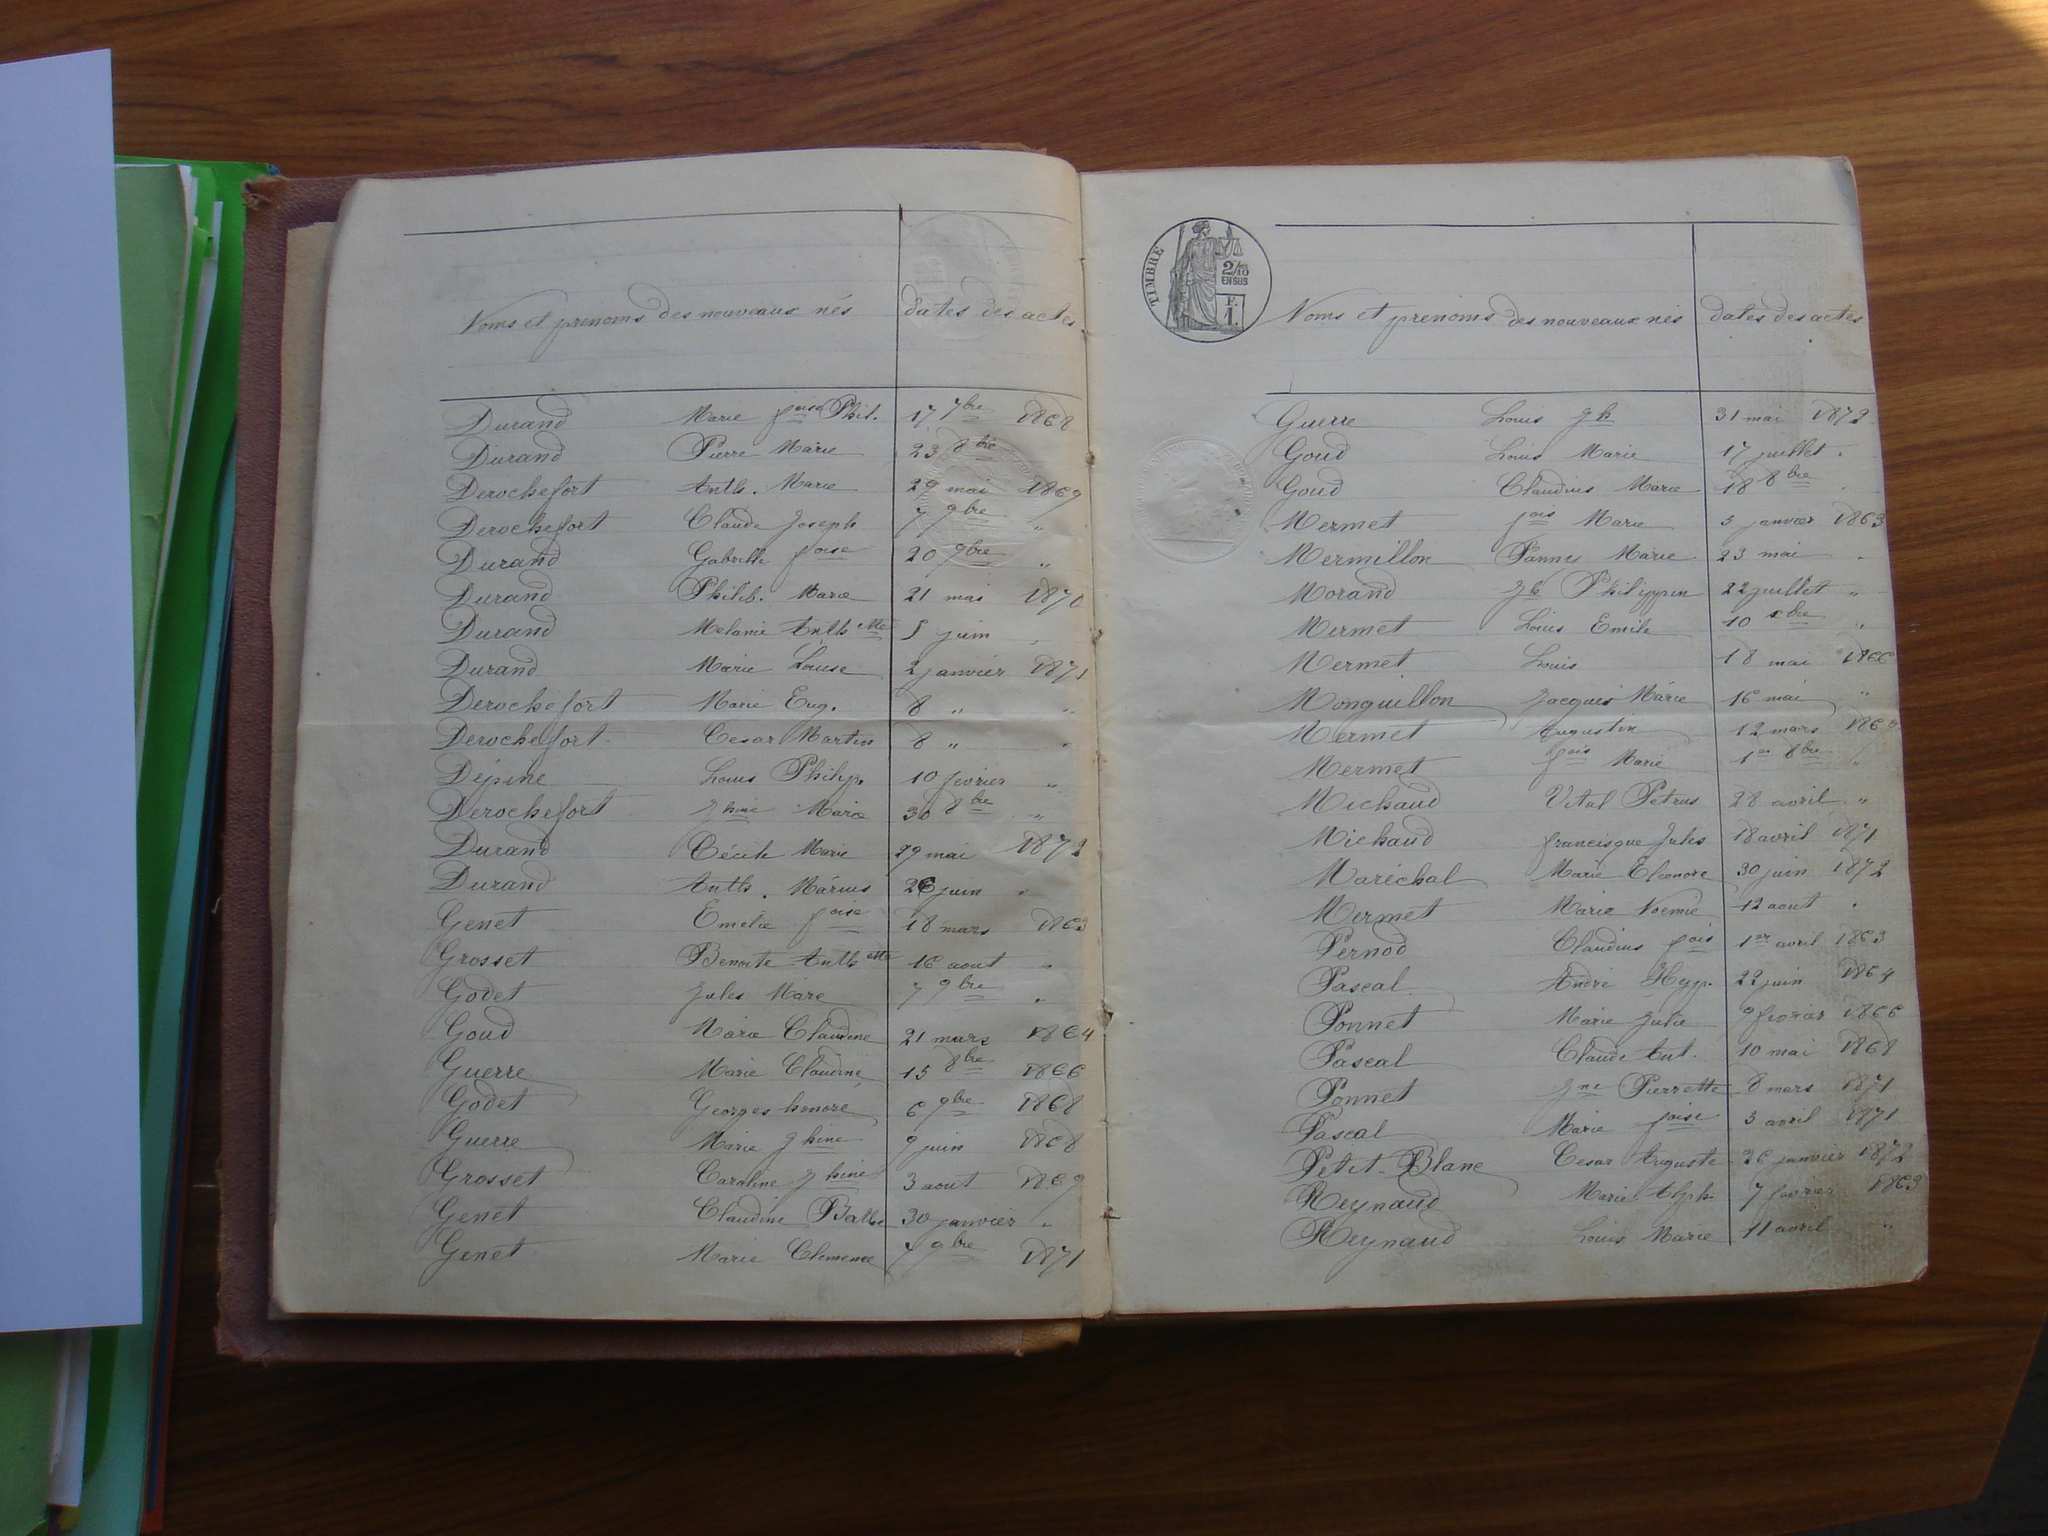 Noms et prenoms des nouveaux nés dates des actes
Durand Marie foise Phil. 17 7bre 1868
Durand Pierre Marie 23 8bre
Derochefort Anth. Marie 29 mai 1869
Derochefort Claude Joseph 7 9bre "
Durand Gabrielle foise 20 9bre "
Durand Philib. Marie 21 mai 1870
Durand Melanie Anth 5 juin "
Durand Marie Louise 2 janvier 1871
Derochefort Marie Eug. 8 " "
Derochefort Cesar Martin 8 " "
Dépine Louis Philip. 10 fevrier "
Derochefort Jhine Marie 30 8bre "
Durand Cécile Marie 29 mai 1872
Durand Anth. Marius 26 juin "
Genet Emelie foise 18 mars 1863
Grosset Benoite Anthette 16 aout "
Godet Jules Marc 7 9bre "
Goud Marie Claudine 21 mars 1864
Guerre Marie Claudine 15 8bre 1866
Godet Georges honoré 6 9bre 1868
Guerre Marie Jhine 9 juin 1868
Grosset Caroline Jhine 3 aout 1869
Genet Claudine Balth 30 janvier "
Genet Marie Clemence 9bre 1871
TIMBRE
2/10
EN SUS
F.
1.
Noms et prenoms des nouveaux nés dates des actes
Guerre Louis Jh 31 mai 1872
Goud Louis Marie 17 juillet "
Goud Claudius Marie 18 8bre
Mermet fois Marie 5 janvier 1863
Mermillon Fanny Marie 23 mai "
Morand Jh Philippin 22 juillet "
Mermet Louis Emile 10 xbre "
Mermet Louis 18 mai 1866
Monguillon Jacques Marie 16 mai "
Mermet Augustin 12 mars
Mermet fois Marie 1er 8bre "
Michaud Vital Petrus 28 avril "
Michaud francisque Jules 18 avril 1871
Maréchal Marie Eleonore 30 juin 1872
Mermet Marie Noemie 12 aout "
Pernod Claudius fois 1er avril 1863
Pascal André Hyp. 22 juin 1864
Ponnet Marie Julie 9 fevrier 1866
Pascal Claude Ant. 10 mai 1868
Ponnet Jne Pierrette 8 mars 1871
Pascal Marie foise 3 avril 1871
Petit-Blanc Cesar Auguste 26 janvier 1872
Reynaud Marie Alph. 7 fevrier 1863
Reynaud Louis Marie 11 avril "